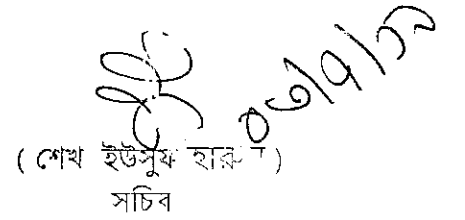 ০৩/৭/১৯
( শেখ ইউসুফ হারুন )
সচিব